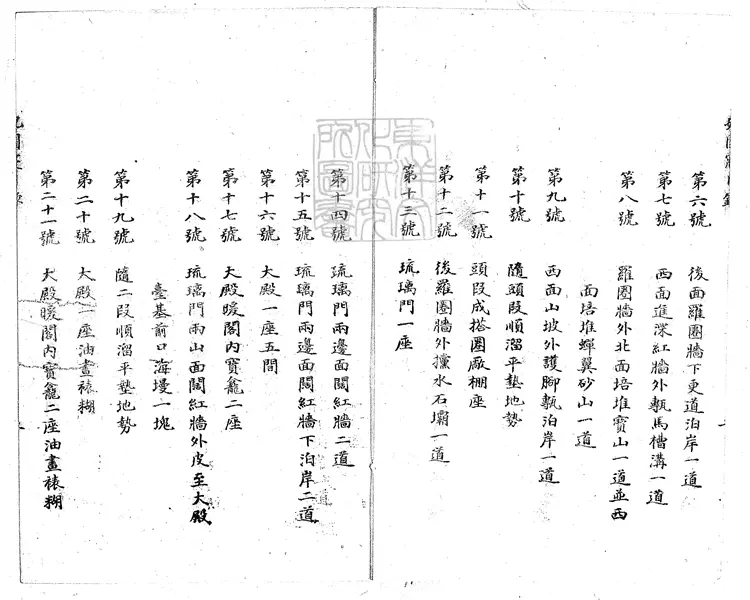 第六號　後面羅圈牆下更道泊岸一道
第七號　西面進深紅牆外甎馬槽溝一道
第八號　羅圈牆外北面培堆寶山一道並西
面培堆蟬翼砂山一道
第九號　西面山坡外護腳甎泊岸一道
第十號　隨頭段順溜平墊地勢
第十一號　頭段成搭圈廠棚座
第十二號　後羅圈牆外攩水石壩一道
第十三號　琉璃門一座
第十四號　琉璃門兩邊面闊紅牆二道
第十五號　琉璃門兩邊面闊紅牆下泊岸二道
第十六號　大殿一座五間
第十七號　大殿暖閣內寶龕二座
第十八號　琉璃門兩山面闊紅牆外皮至大殿
臺基前口海墁一塊
第十九號　隨二段順溜平墊地勢
第二十號　大殿一座油畫裱糊
第二十一號　大殿暖閣內寶龕二座油畫裱糊